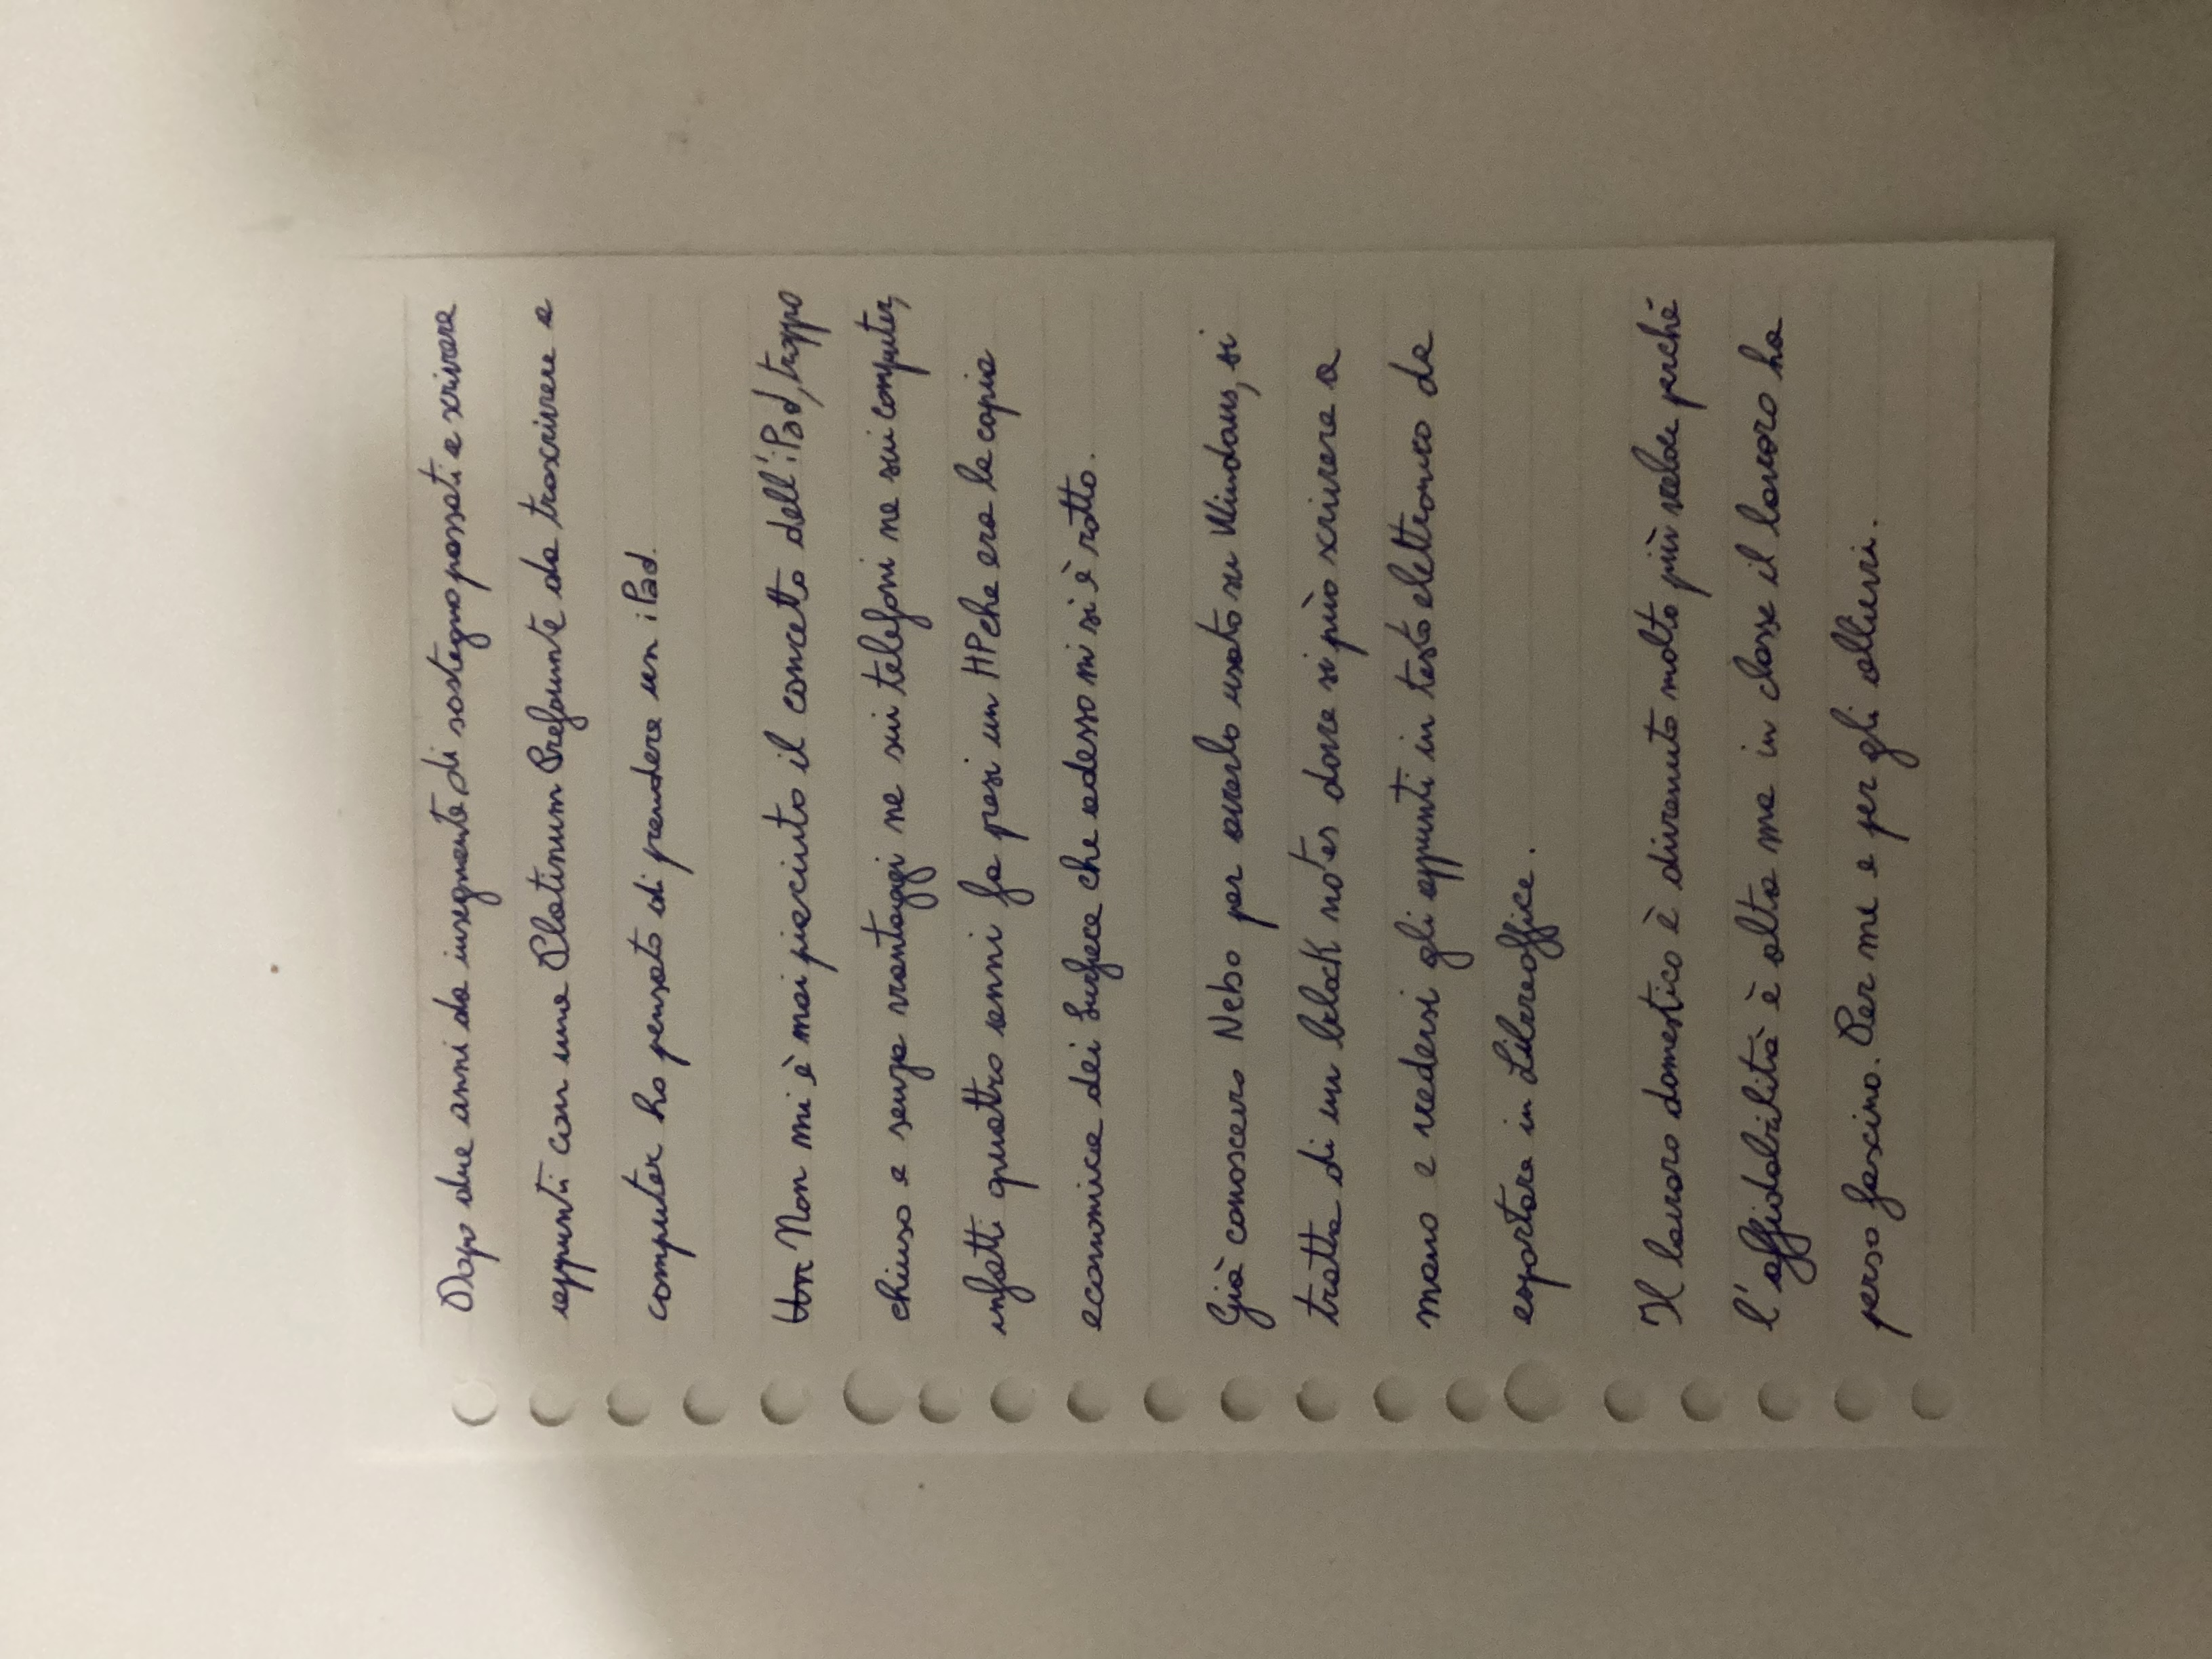 Dopo due anni da insegnante di sostegno passati a scrivere
appunti con una Platinum Prefounte da trascrivere a
computer ho pensato di prendere un iPad.
Non mi è mai piaciuto il concetto dell'iPad, troppo
chiuso e senza vantaggi ne sui telefoni ne sui computer,
infatti quattro anni fa presi un HP che era la copia
economica dei Surface che adesso mi si è rotto.
Già conoscevo Nebo per averlo usato su Windows, si
tratta di un block notes dove si può scrivere a
mano e vedersi gli appunti in testo elettronico da
esportare in Libreoffice.
Il lavoro domestico è diventato molto più veloce perché
l'affidabilità è alta ma in classe il lavoro ha
perso fascino. Per me e per gli allievi.